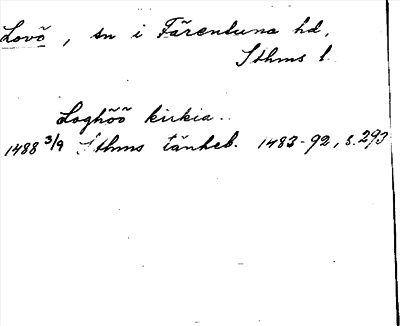 Lovö, sn i Färentuna hd,
Sthms l.
Loghöö kirkia..
1488 3/9 Sthms tänkeb. 1483-92, s. 293